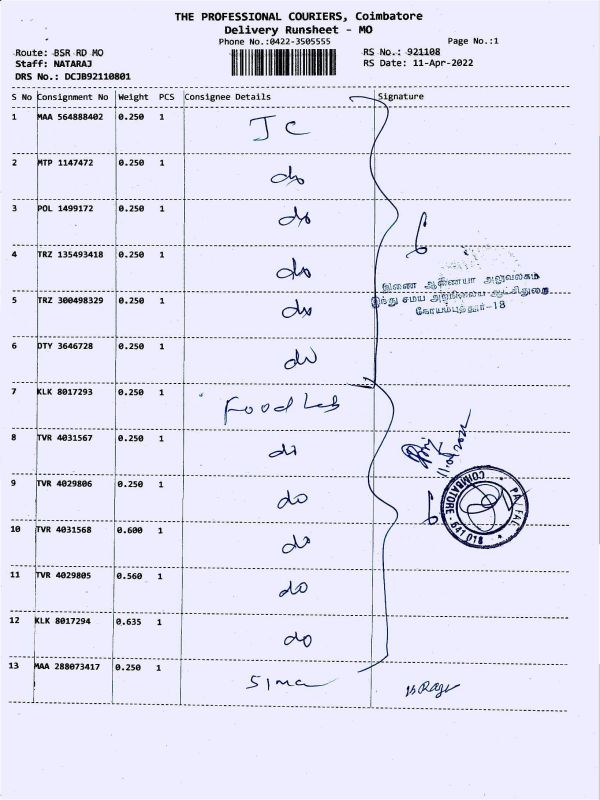 THE PROFESSIONAL COURIERS, Coimbatore
Delivery Runsheet - MO
Phone No.:0422-3505555 Page No.:1
Route: BSR RD MO RS No.: 921108
Staff: NATARAJ RS Date: 11-Apr-2022
DRS No.: DCJB92110801
S No Consignment No Weight PCS Consignee Details Signature
1 MAA 564888402 0.250 1 JC
2 MTP 1147472 0.250 1 do
3 POL 1499172 0.250 1 do 6
4 TRZ 135493418 0.250 1 do
இணை ஆணையர் அலுவலகம்
இந்து சமய அறநிலைய ஆட்சிதுறை
கோயம்புத்தூர்-18
5 TRZ 300498329 0.250 1 do
6 DTY 3646728 0.250 1 do
7 KLK 8017293 0.250 1 Food Lab
8 TVR 4031567 0.250 1 do
9 TVR 4029806 0.250 1 do 6
COIMBATORE 641 018
10 TVR 4031568 0.600 1 do
11 TVR 4029805 0.560 1 do
12 KLK 8017294 0.635 1 do
13 MAA 288073417 0.250 1 Sima